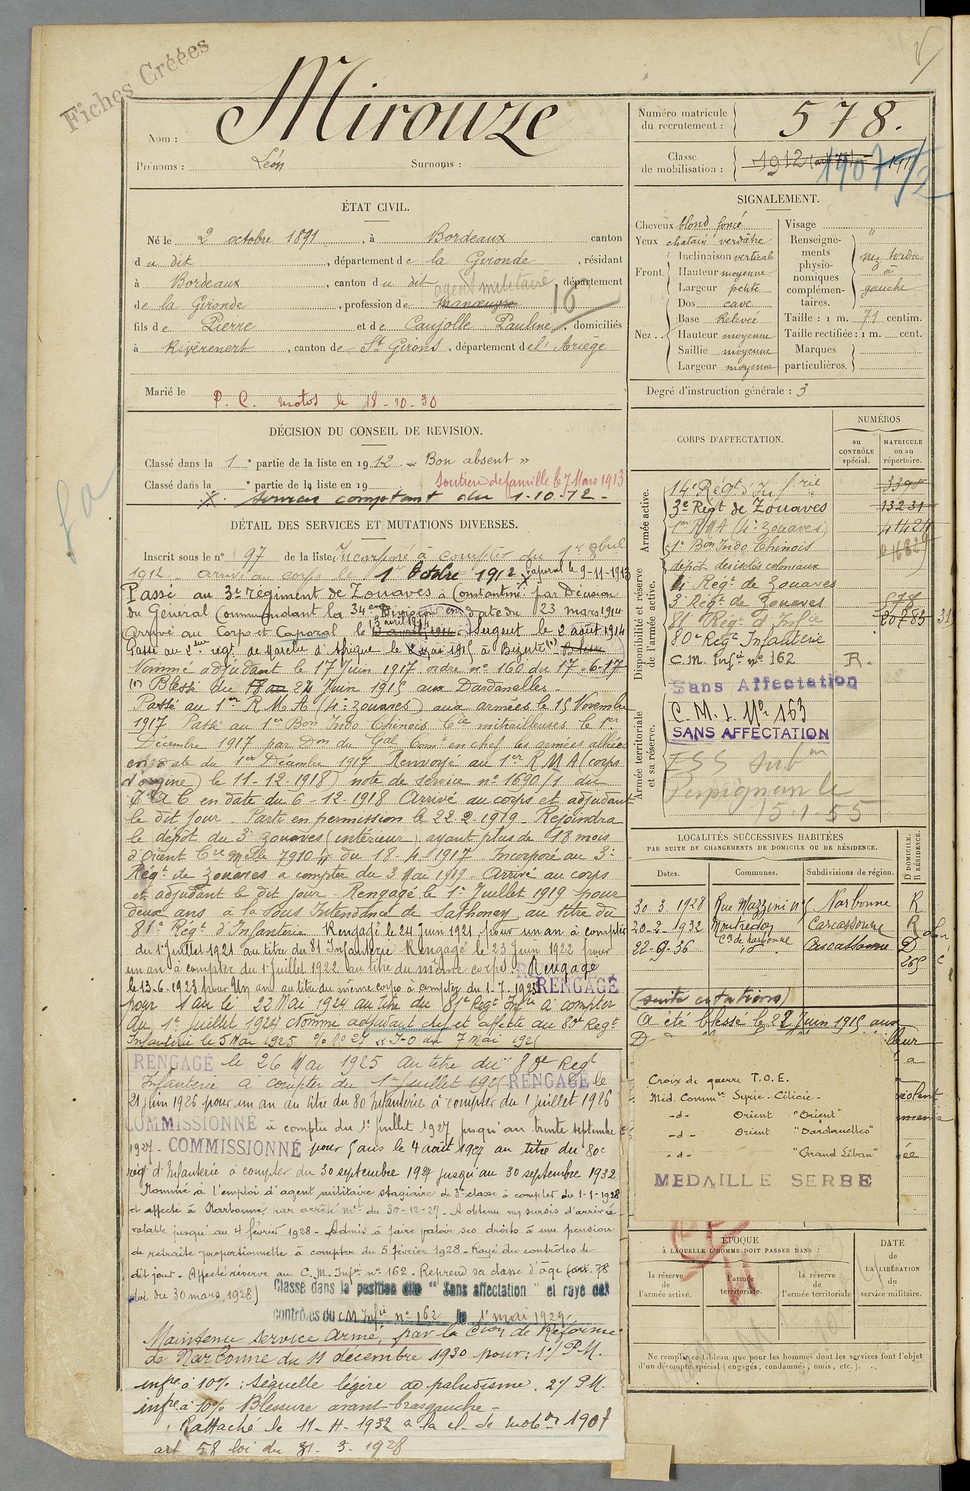 Fiches Créées
Nom : Mirouze
Prénoms : Léon Surnoms :
Numéro matricule du recrutement : 578.
Classe de mobilisation : 1912 1907
ÉTAT CIVIL.
Né le 2 octobre 1891, à Bordeaux canton
du dit, département de la Gironde, résidant
à Bordeaux, canton du dit, département
agent militaire 16
de la Gironde, profession de manœuvre
fils de Pierre et de Caujolle Pauline, domiciliés
à Rivèrenert, canton de St Girons, département de l'Ariège
Marié le
P. C. motos le 18-10-30
DÉCISION DU CONSEIL DE REVISION.
Classé dans la 1e partie de la liste en 1912. « Bon absent »
Classé dans la e partie de la liste en 19 Soutien de famille le 7 Mars 1913
Services comptant du 1-10-12-
DÉTAIL DES SERVICES ET MUTATIONS DIVERSES.
Inscrit sous le n° 97 de la liste Incorporé à compter du 1er
1912. Arrivé au corps le 1er Octobre 1912 Caporal le 9-11-1913
Passé au 3e régiment de Zouaves à Constantine par Décision
du Général Commandant la 34eme Division en date du 23 mars 1914
Arrivé au Corps et Caporal le 3 avril 1914 Sergent le 2 août 1914
Passé au 2eme régt de marche d'Afrique le mai 1915 à Bizerte
Nommé adjudant le 17 Juin 1917 ordre n° 160 du 17-6-17
(1) Blessé du 24 Juin 1915 aux Dardanelles.
Passé au 1er R.M.A (4e zouaves) aux armées le 15 Novembre
1917 Passé au 1er Bon Indo Chinois Cie mitrailleuses le 1er
Décembre 1917 par Don du Gal Comt en chef les armées alliées
en date du 1er Décembre 1917 Renvoyé au 1er R M A (corps
d'origine) le 11-12-1918) note de service n° 1690/1 du
en date du 6-12-1918 Arrivé au corps et adjudant
le dit jour. Parti en permission le 22.2.1919. Rejoindra
le dépôt du 3e zouaves (intérieur) ayant plus de 18 mois
d'Orient Cre Melle 7910 du 18-4-1917 Incorporé au 3e
Régt de Zouaves à compter du 3 Mai 1919. Arrivé au corps
et adjudant le dit jour - Rengagé le 1er Juillet 1919 pour
deux ans à la Sous Intendance de Sathonay au titre du
81e Régt d'Infanterie Rengagé le 24 juin 1921 pour un an à compter
du 1er juillet 1921 au titre du 81 Infanterie Rengagé le 23 Juin 1922 pour
un an à compter du 1er juillet 1922 au titre du même corps. Rengagé
le 13-6-1923 pour Un an au titre du même corps à compter du 1-7-1923 RENGAGÉ
pour 1 an le 22 Mai 1924 au titre du 81e Régt Infie à compter
du 1er Juillet 1924 Nommé adjudant chef et affecté au 80e Régt
Infanterie le 5 Mai 1925 J-O du 7 mai 1925
RENGAGÉ le 26 Mai 1925 au titre du 80e Régt
Infanterie à compter du 1er juillet 1925 RENGAGÉ le
21 juin 1926 pour un an au titre du 80 Infanterie à compter du 1 juillet 1926
COMMISSIONNE à compter du 1er juillet 1927 jusqu'au trente septembre
1927 - COMMISSIONNÉ pour 5 ans le 4 août 1927 au titre du 80e
régt d'Infanterie à compter du 30 septembre 1927 jusqu'au 30 septembre 1932
Nommé à l'emploi d'agent militaire stagiaire de 3e classe à compter du 1-1-1928
et affecté à Narbonne, par arrêté mel du 30-12-27. A obtenu un sursis d'arrivée
valable jusqu'au 4 février 1928 - Admis à faire valoir ses droits à une pension
de retraite proportionnelle à compter du 5 février 1928 - Rayé des contrôles le
dit jour. Affecté réserve au C.M. Infie n° 162. Reprend sa classe d'âge (art. 58
loi du 30 mars 1928) Classé dans la position dite " Sans affectation " et rayé des
contrôles du CM Infie n° 162 le 1er mai 1929.
Maintenu service Armé, par la Cion de Réforme
de Narbonne du 11 décembre 1930 pour: 1°/ P.M.
infre à 10%: séquelle légère de paludisme. 2°/ P.M.
infre à 10% Blessure avant-bras gauche-
Rattaché le 11-4-1932 à la cl. de mobon 1907
art 58 loi du 31.3.1928
SIGNALEMENT.
Cheveux blond foncé
Yeux chatain verdâtre
Front. Inclinaison verticale
Hauteur moyenne
Largeur petite
Nez. Dos cave
Base Relevée
Hauteur moyenne
Saillie moyenne
Largeur moyenne
Visage
Renseignements physionomiques complémentaires. nez tordu à gauche
Taille : 1 m. 71 centim.
Taille rectifiée : 1 m. cent.
Marques particulières.
Degré d'instruction générale : 3
CORPS D'AFFECTATION.
NUMÉROS
au CONTRÔLE spécial.
MATRICULE ou au répertoire.
Armée active.
Disponibilité et réserve de l'armée active.
Armée territoriale et sa réserve.
14e Régt d'Infrie
3e Régt de Zouaves 13231
1er RMA (4e zouaves)
1er Bon Indo Chinois
dépôt des isolés coloniaux
4e Régt de Zouaves
3e Régt de Zouaves
81e Régt d'Infie
80e Regt Infanterie
C.M. Infie n° 162 R.
Sans Affectation
C.M.I. No 163
SANS AFFECTATION
ESS Subon
Perpignan le
15-1-55
LOCALITÉS SUCCESSIVES HABITÉES
PAR SUITE DE CHANGEMENTS DE DOMICILE OU DE RÉSIDENCE.
Dates. Communes. Subdivisions de région. D DOMICILE. R RÉSIDENCE.
30 3 1928 Rue Mazzini n° 5 Narbonne R
20-2-1932 Montredon Carcassonne R
Con de Narbonne
22-9-36 id Carcassonne D
(suite citations)
(a été blessé le 22 Juin 1915 aux
Croix de guerre T.O.E.
Méd. Commve Syrie-Cilicie-
-d- Orient "Orient"
-d- Orient "Dardanelles"
-d- "Grand Liban"
MEDAILLE SERBE
ÉPOQUE
À LAQUELLE L'HOMME DOIT PASSER DANS :
la réserve de l'armée active.
l'armée territoriale.
la réserve de l'armée territoriale
DATE de LA LIBÉRATION du service militaire.
Ne remplir ce tableau que pour les hommes dont les services font l'objet
d'un décompte spécial (engagés, condamnés, omis, etc.).